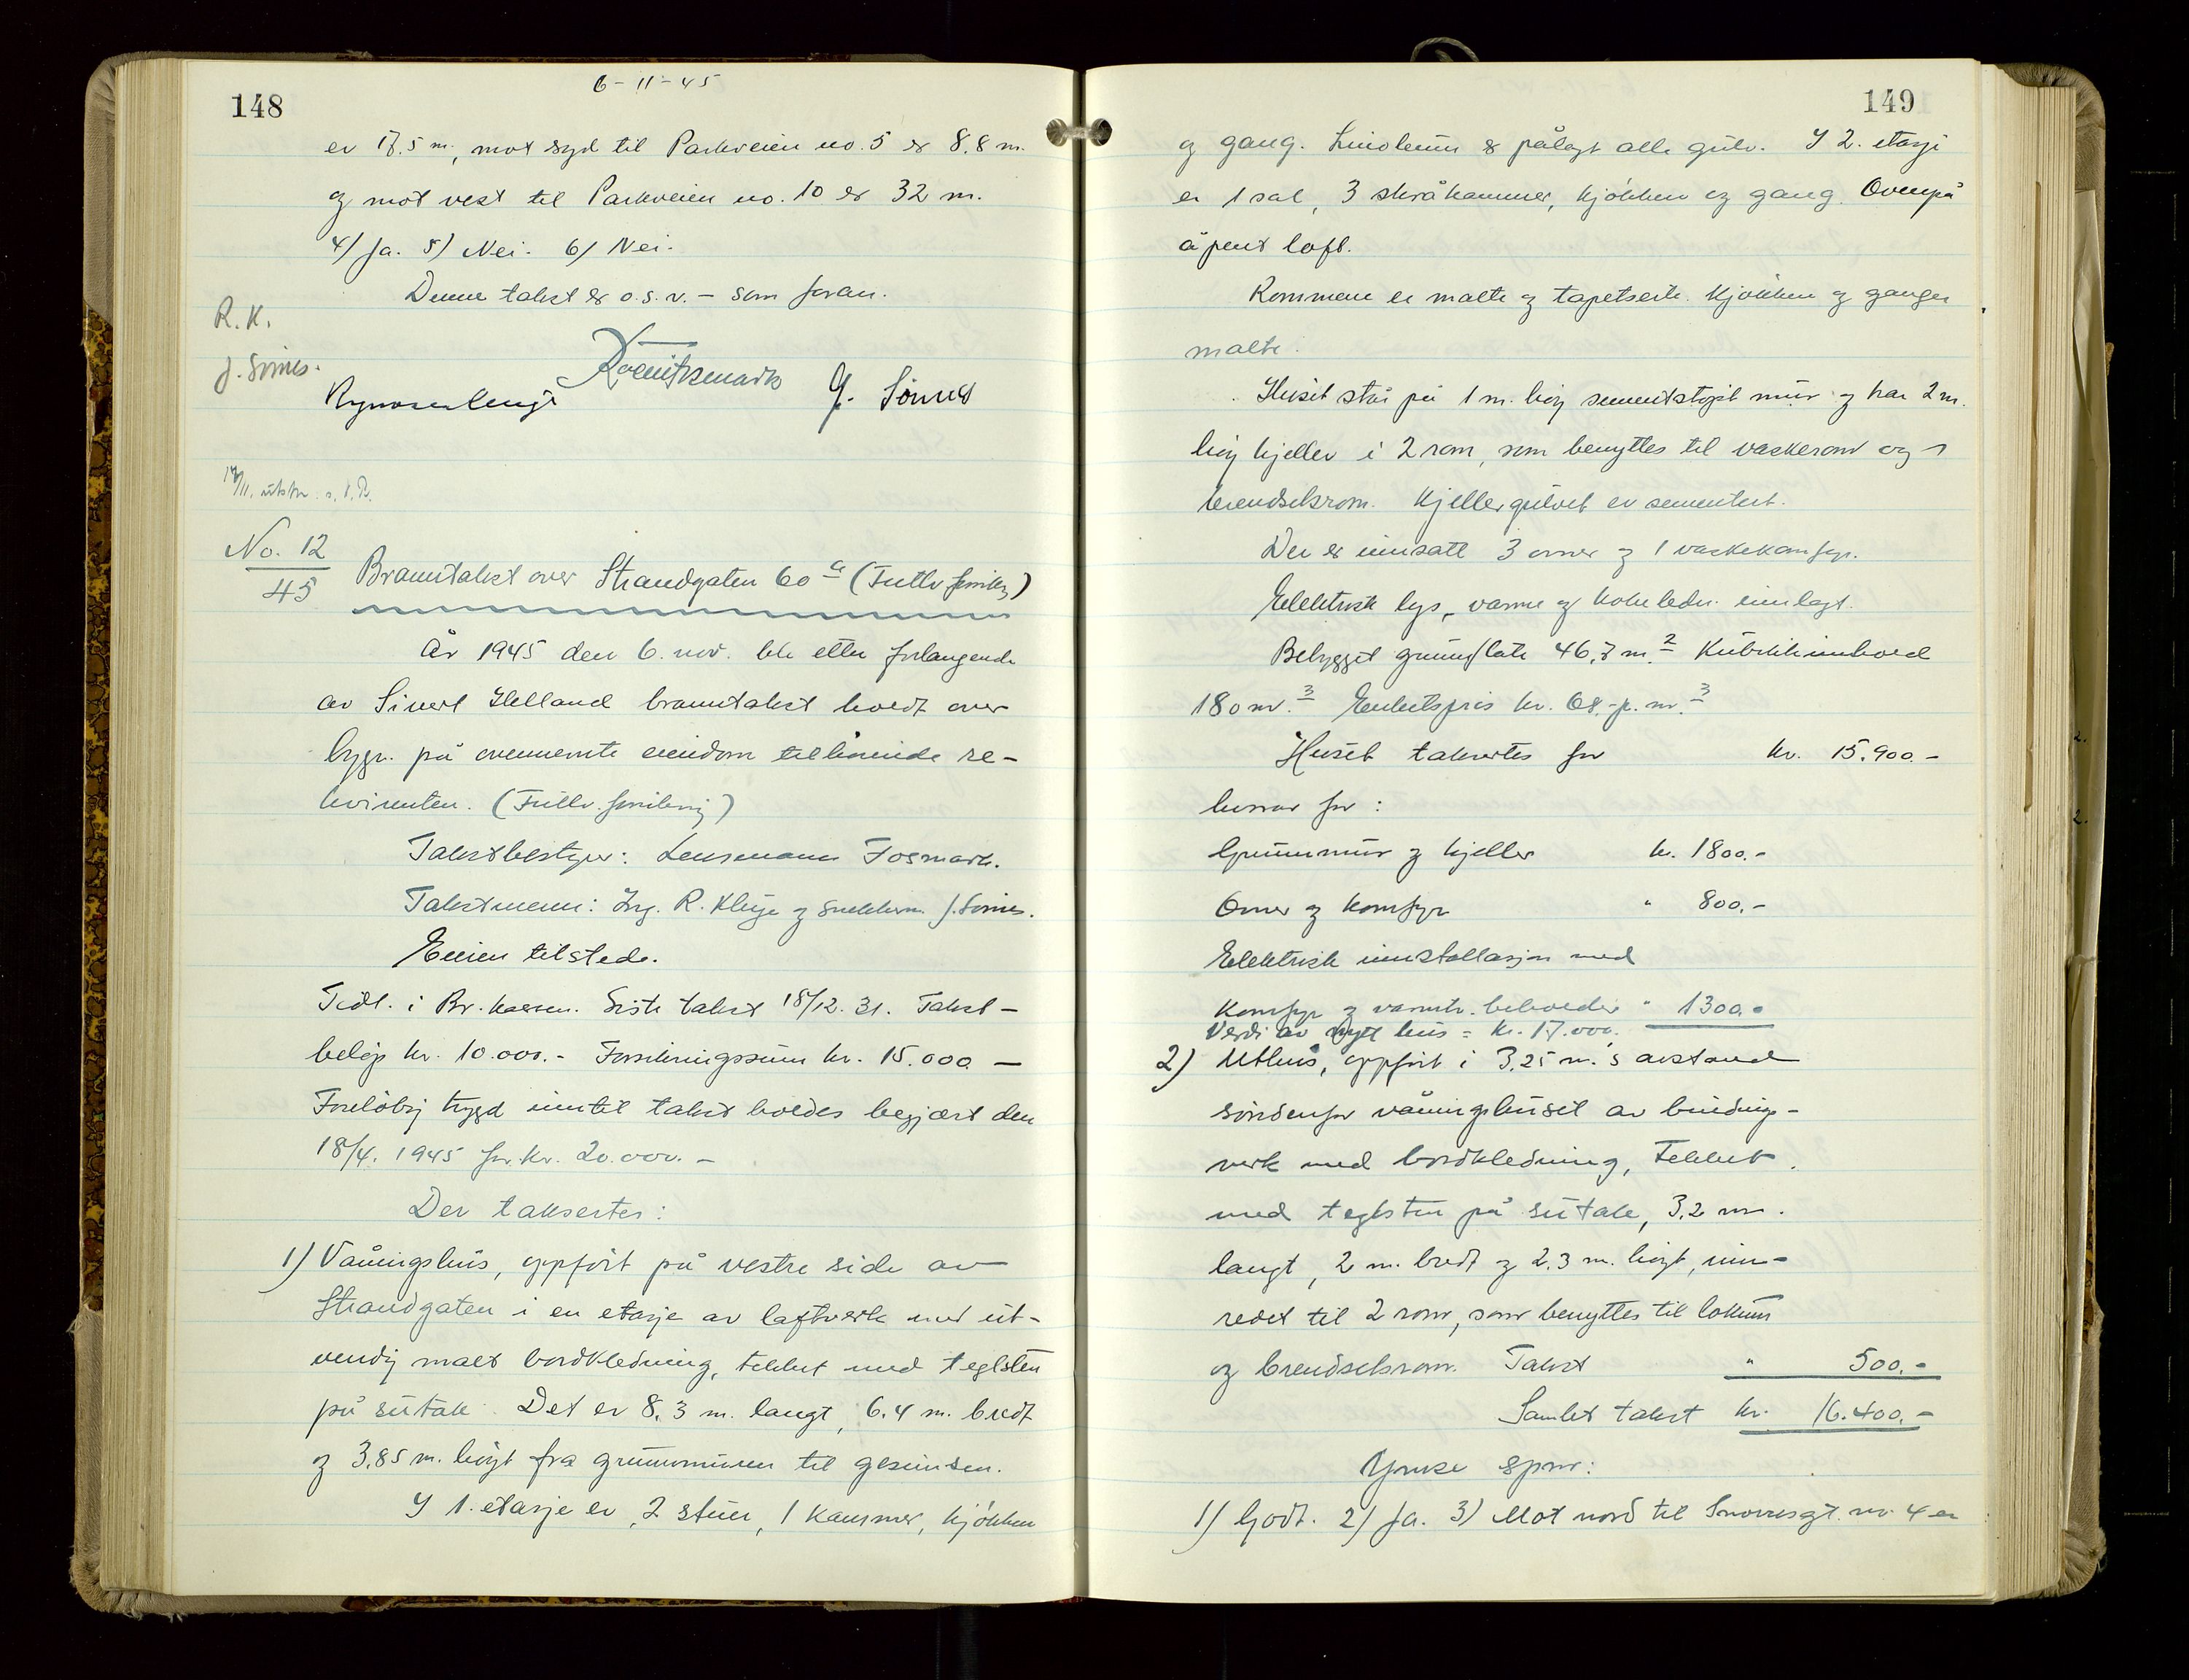 148
6-11-45
er 17.5 m, mot syd til Parkveien no. 5 er 8.8 m.
og mot vest til Parkveien no. 10 er 32 m.
4) Ja. 5) Nei. 6) Nei.
Denne takst er o.s.v. - som foran.
R.K.
J. Sømes.
J. Sømes
14/11. utskr.
No. 12
45
Branntakst over Strandgaten 60 a (Fullv. forsikr.)
År 1945 den 6. nov. ble etter forlangende
av Sivert Helland branntakst holdt over
bygn. på ovennevnte eiendom tilhörende re-
kvirenten. (Fullv. forsikring)
Takstbestyrer: Lensmann Fosmark.
Takstmenn: Ing. R. Kluge og snekkerm. J. Sømes.
Eieren tilstede.
Tidl. i Br. kassen. Siste takst 18/12. 31. Takst-
belöp kr. 10.000.- Forsikringssum kr. 15.000 -
Forelöbig trygd inntil takst holdes begjært den
18/4. 1945 for kr. 20.000. -
Der taksertes:
1) Våningshus, oppfört på vestre side av
Strandgaten i en etasje av laftverk med ut-
vendig malt bordkledning, tekket med teglsten
på sutak. Det er 8,3 m. langt, 6.4 m. bredt
og 3,85 m. höyt fra grunnmuren til gesimsen.
I 1. etasje er 2 stuer, 1 kammer, kjökken
149
og gang. Linoleum er pålagt alle gulv. I 2. etasje
er 1 sal, 3 skråkammer, kjökken og gang. Ovenpå
åpent loft.
Rommene er malte og tapetserte. Kjökken og ganger
malte.
Huset står på 1 m. höy sementstöpt mur og har 2 m.
höy kjeller i 2 rom, som benyttes til vaskerom og
brendselsrom. Kjellergulvet er sementert.
Der er innsatt 3 ovner og 1 vaskekomfyr.
Elektrisk lys, varme og kokeledn. innlagt.
Bebygget grunnflate 46,7 m.2 Kubikkinnhold
180 m.3 Enhetspris kr. 68.- p. m.3
Huset taksertes for kr. 15.900.-
hvorav for:
Grunnmur og kjeller kr. 1800.-
Ovner og komfyr " 800.-
Elektrisk innstallasjon med
Komfyr og varmtv. beholder " 1300.-
Verdi av nytt hus = kr. 17.000.
2) Uthus, oppfört i 3,25 m.s avstand
söndenfor våningshuset av bindings-
verk med bordkledning, tekket
med teglsten på sutak, 3,2 m.
langt, 2 m. bredt og 2.3 m. höyt, inn-
redet til 2 rom, som benyttes til lokum
og brendselsrom. Takst " 500.-
Samlet takst kr. 16.400.-
Ymse spm:
1) Godt. 2) Ja. 3) Mot nord til Snorresgt. no. 4 er